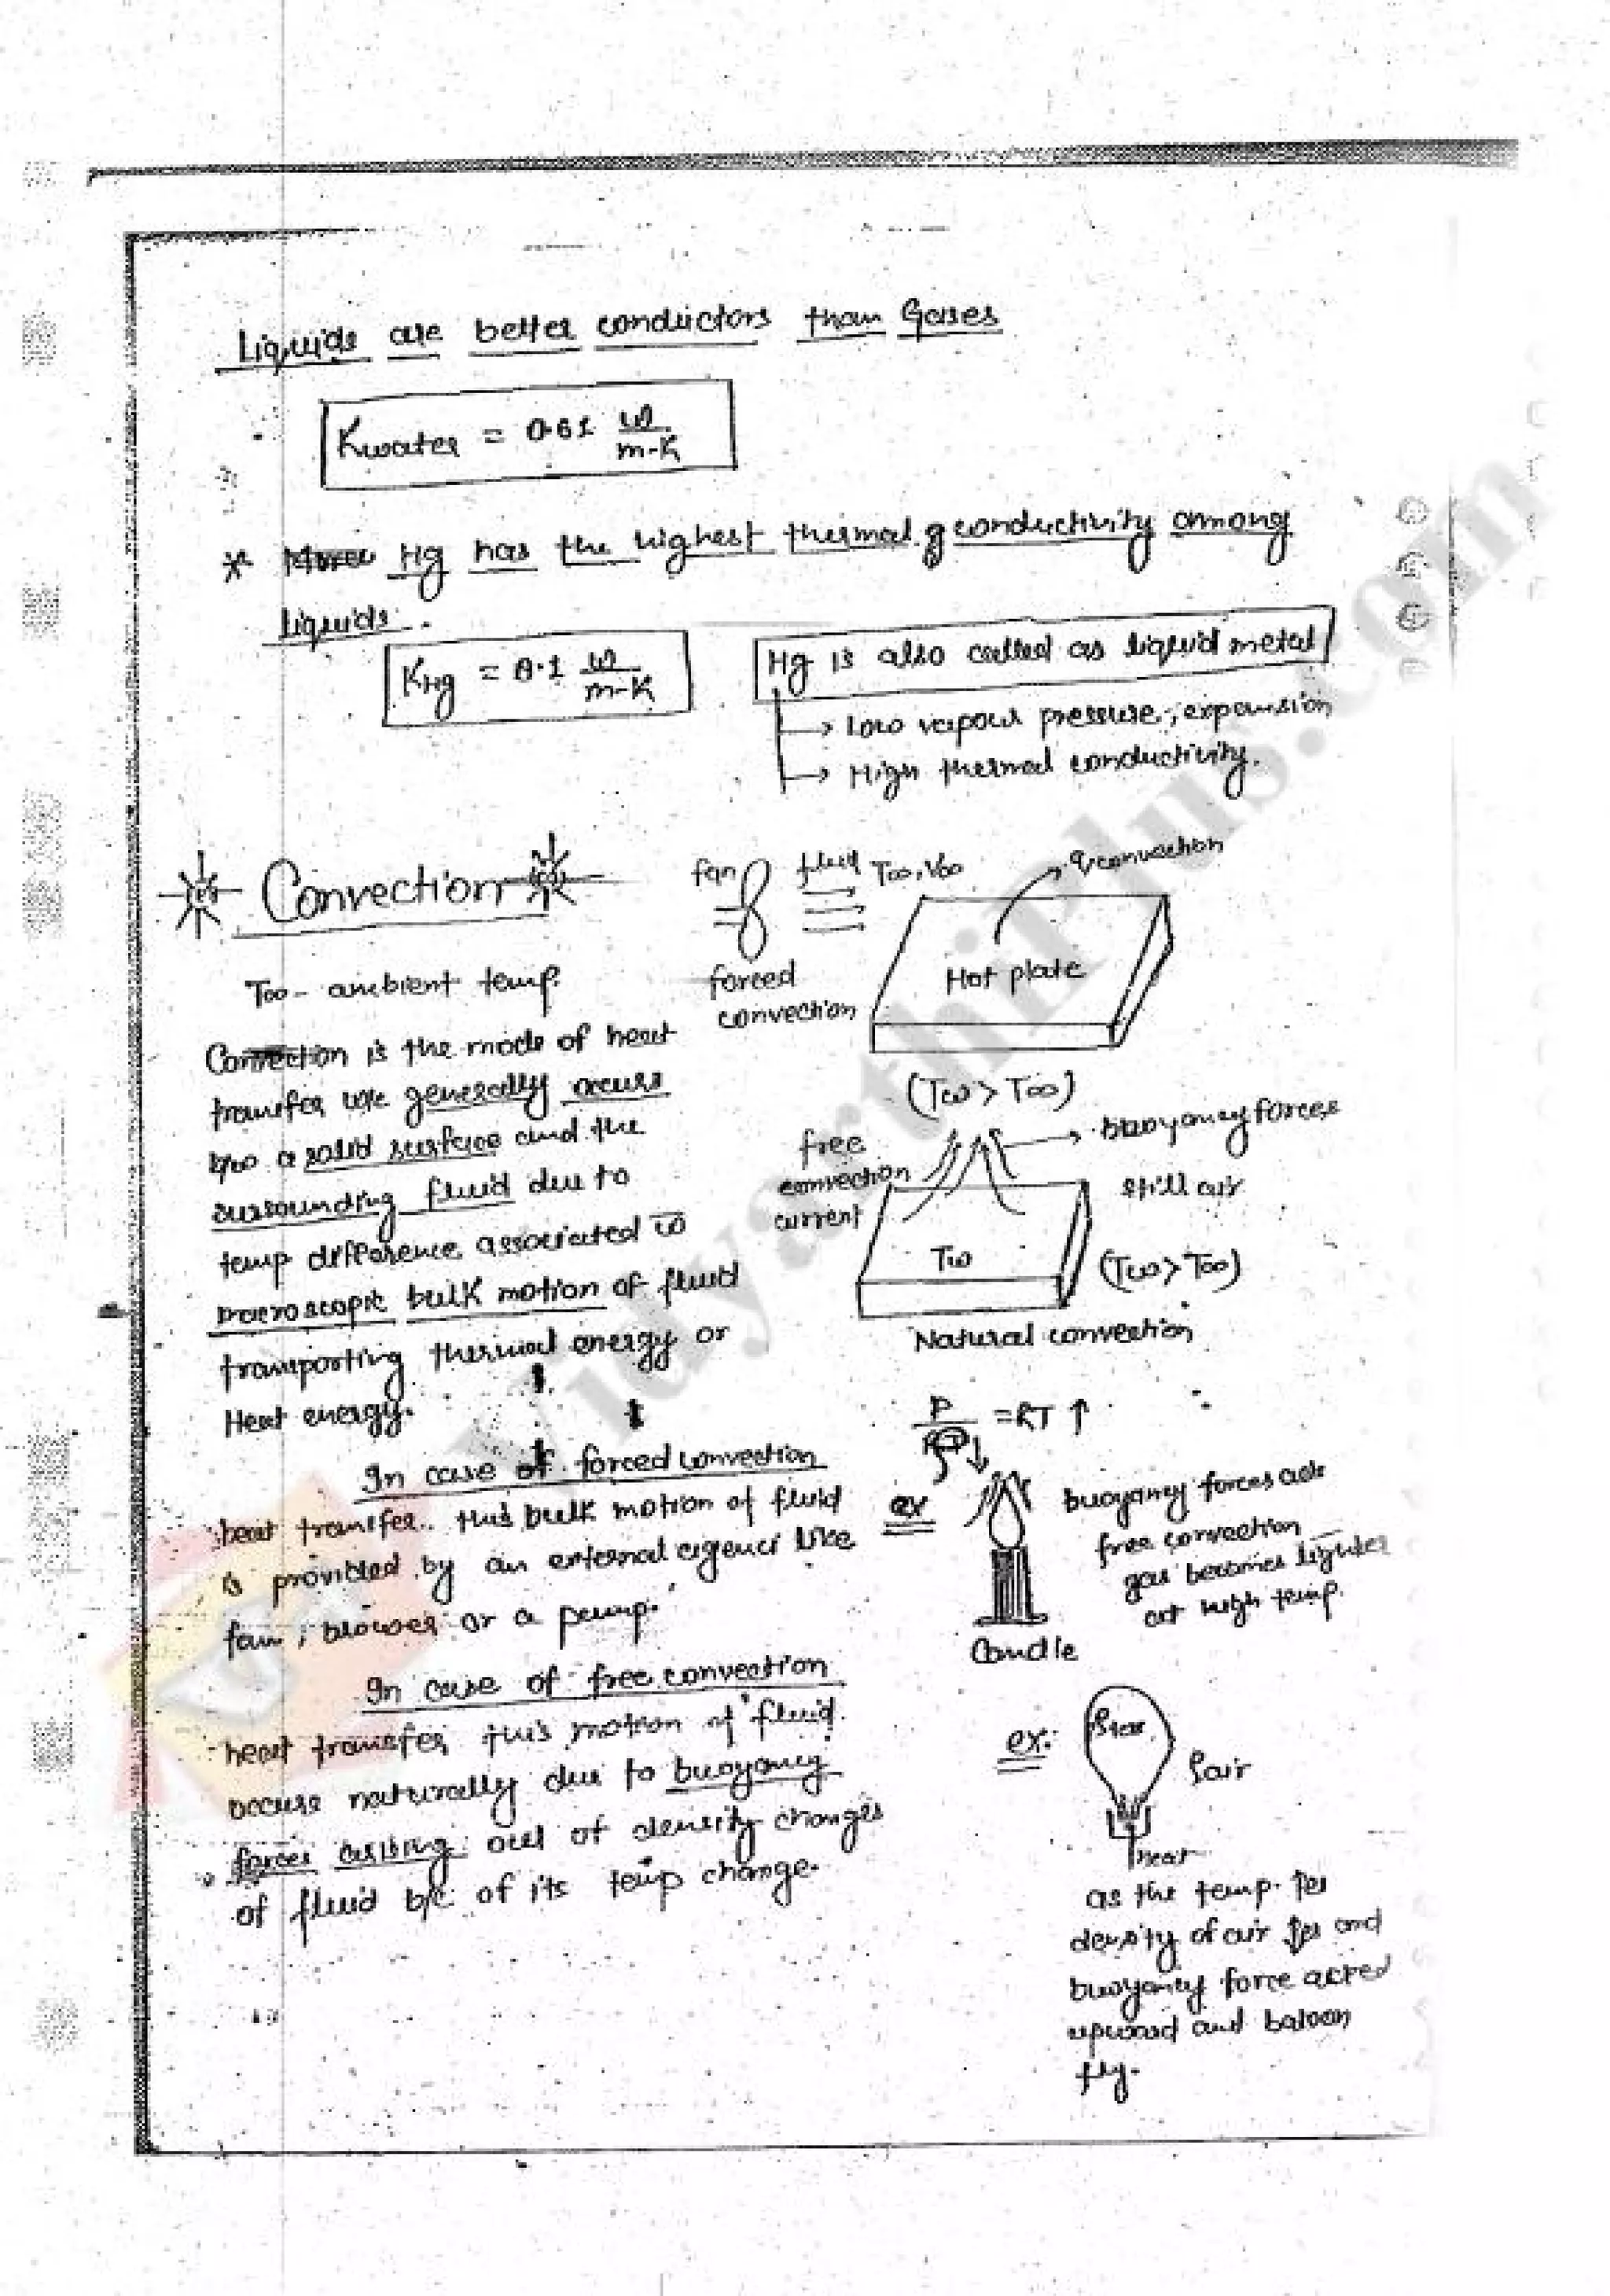 Liquids are better conductors than Gases
Kwater = 0.61 W/m-K
* Hg has the highest thermal conductivity among
liquids.
KHg = 8.1 W/m-K
Hg is also called as liquid metal
→ Low vapour pressure, expansion
→ High thermal conductivity.
Convection
fan
fluid T∞, V∞
qconvection
Hot plate
forced
convection
(Tw > T∞)
T∞ - ambient temp.
Convection is the mode of heat
transfer generally occurs
b/w a solid surface and the
surrounding fluid due to
temp difference associated w̄
macroscopic bulk motion of fluid
transporting thermal energy or
Heat energy.
free
convection
current
buoyancy forces
still air
Tw
(Tw > T∞)
Natural convection
In case of forced convection
heat transfer, this bulk motion of fluid
is provided by an external agenci like
fan, blower or a pump.
P/ρ = RT ↑
ex
buoyancy forces are
free convection
gas becomes lighter
at high temp.
Candle
In case of free convection
heat transfer, this motion of fluid
occurs naturally due to buoyancy
forces arising out of density changes
of fluid b/c of its temp change.
ex:
ρair
heat
as the temp. ↑es
density of air ↓es and
buoyancy force acted
upward and baloon
fly.
VidyarthiPlus.com